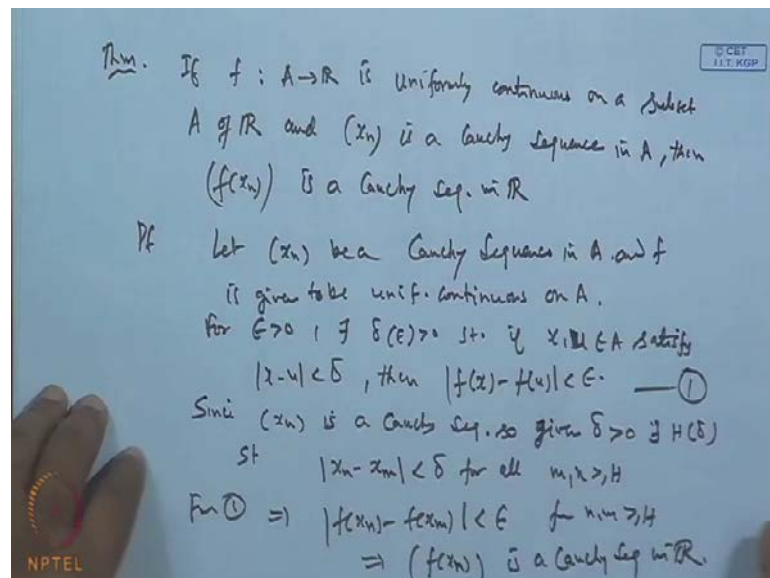 © CET
I.I.T. KGP
Thm. If f : A→R is uniformly continuous on a subset
A of R and (xn) is a Cauchy sequence in A, then
(f(xn)) is a Cauchy seq. in R
Pf Let (xn) be a Cauchy sequence in A and f
is given to be unif. continuous on A.
For ε>0, ∃ δ(ε)>0 st. if x, u ∈ A satisfy
|x-u|<δ, then |f(x)-f(u)|<ε. — ①
Since (xn) is a Cauchy seq. so given δ>0 ∃ H(δ)
st |xn-xm|<δ for all m,n≥H
From ① ⇒ |f(xn)-f(xm)|<ε for n,m≥H
⇒ (f(xn)) is a Cauchy seq in R.
NPTEL